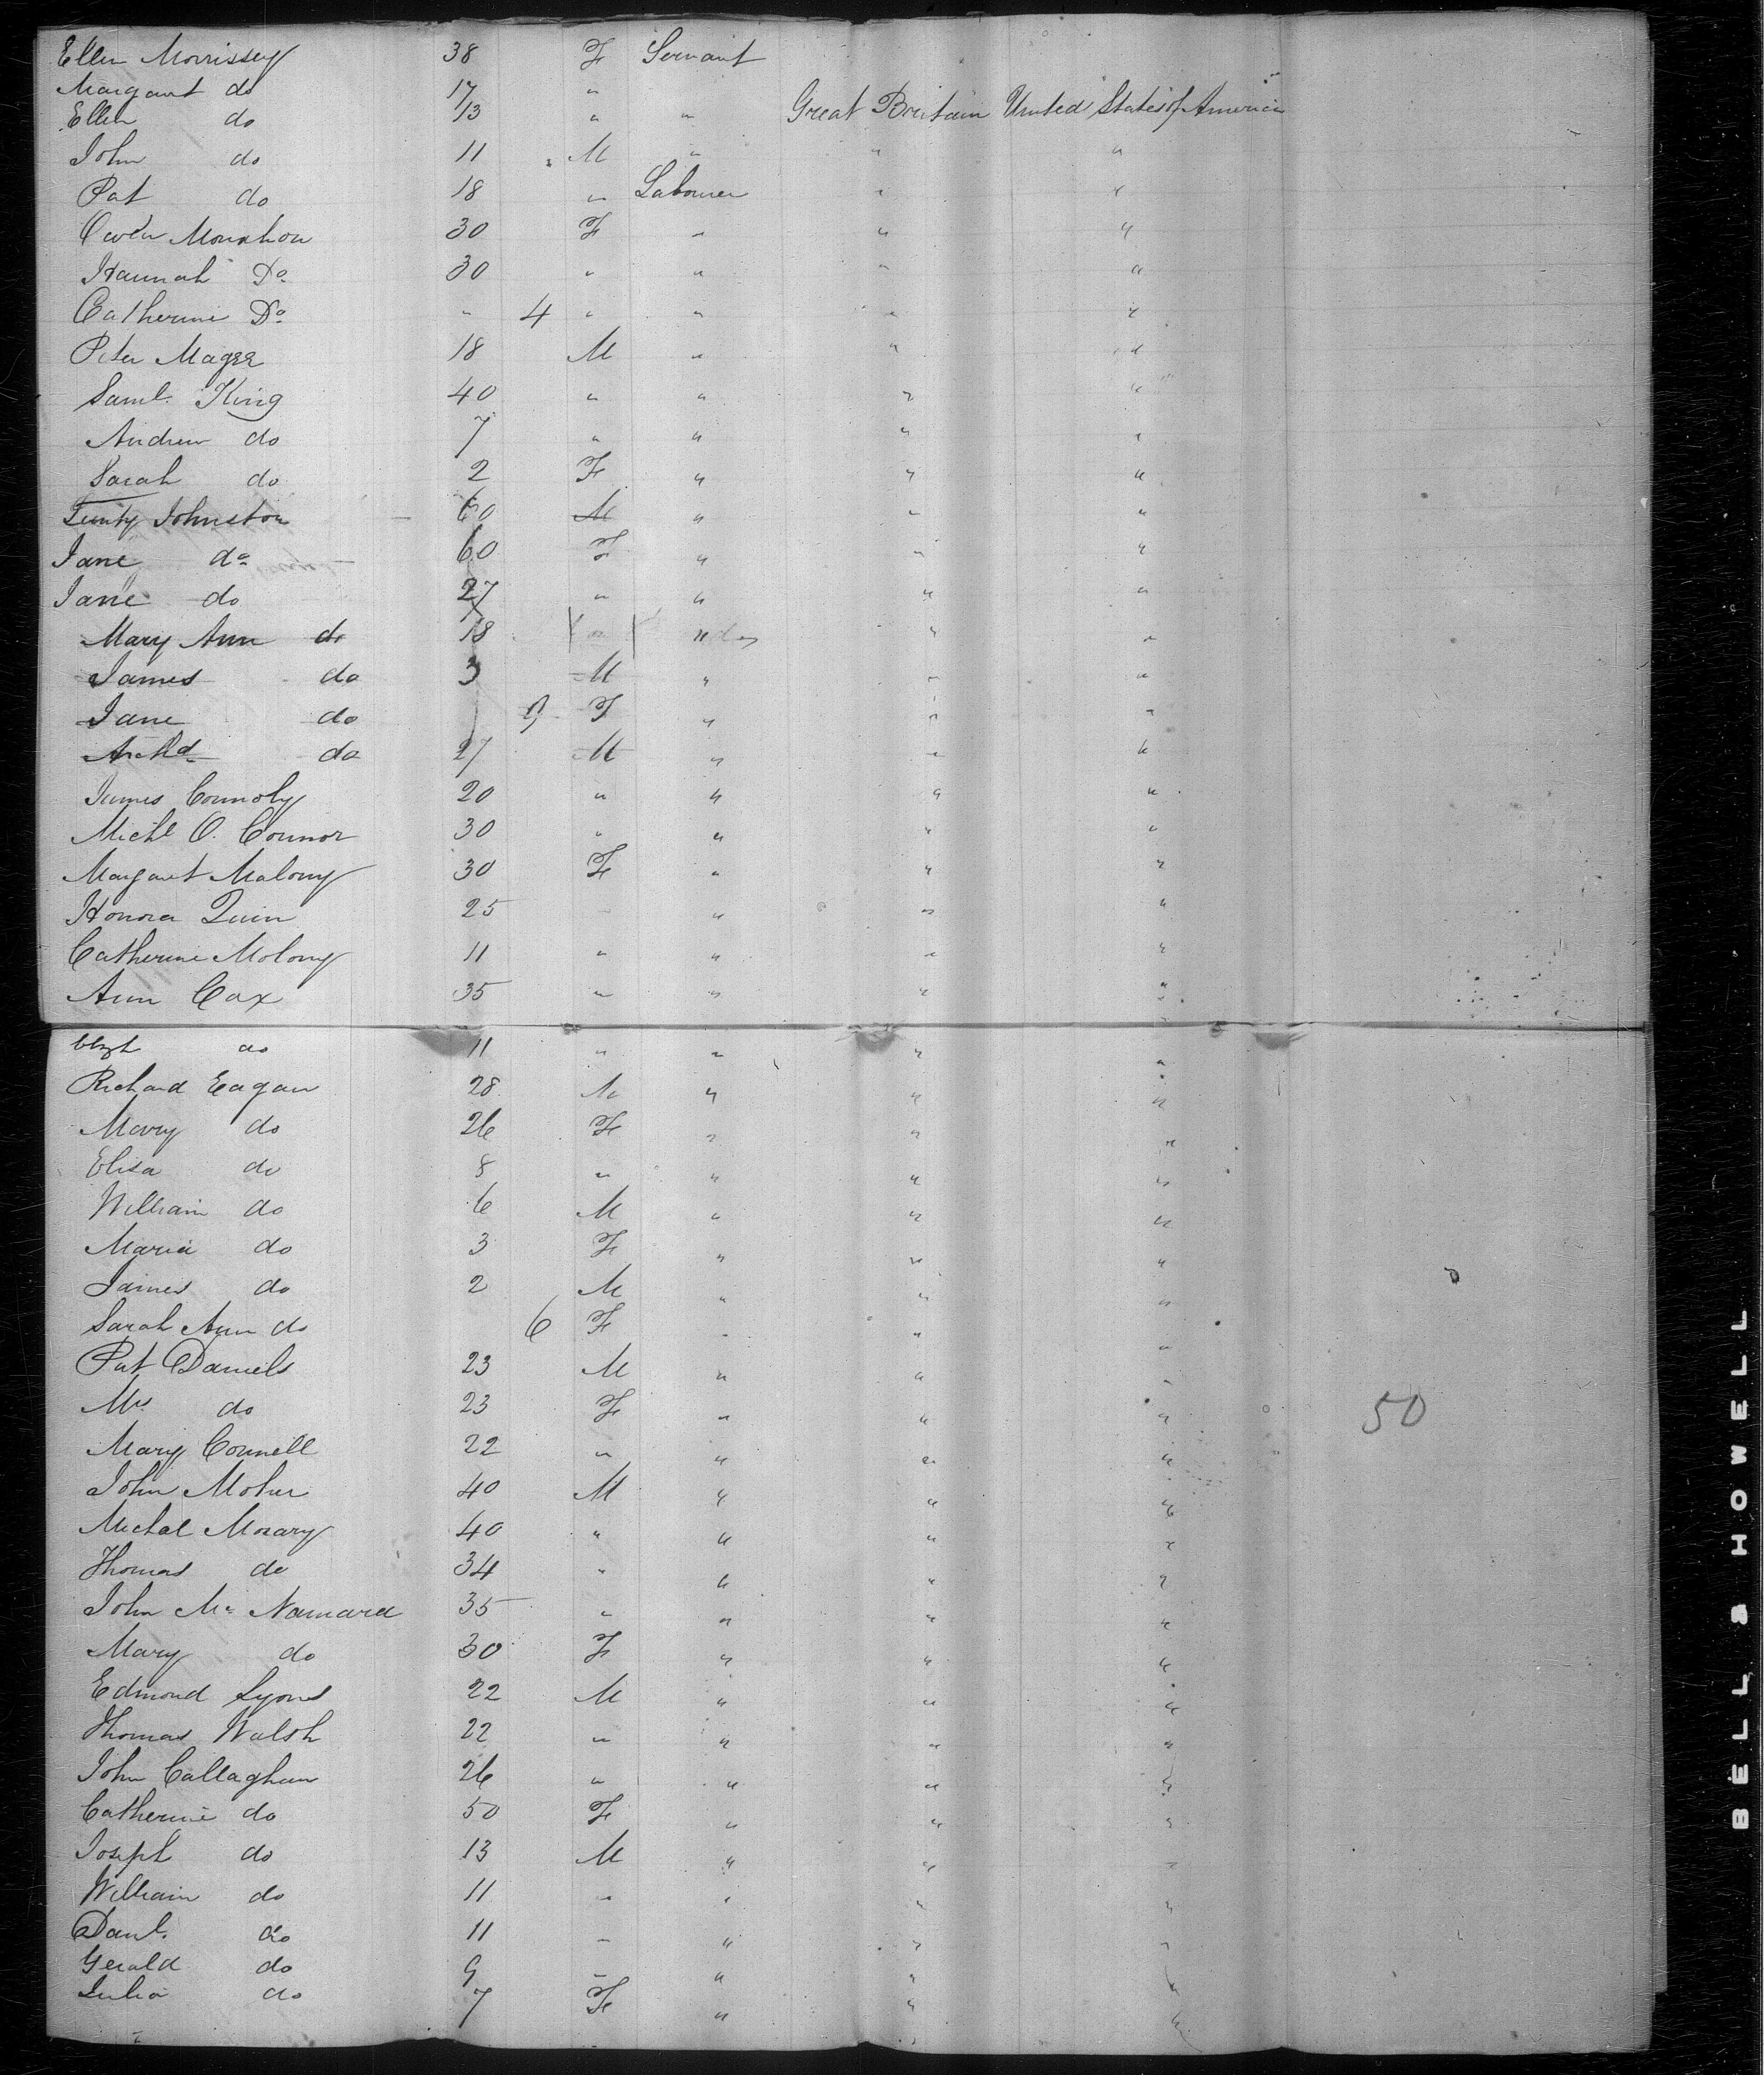 Ellen Morrissey 38 F Servant
Margaret do 17 "
Ellen do 13 " " Great Britain United States of America
John do 11 M " " "
Pat do 18 " Labourer " "
Owen Monahon 30 F " " "
Hannah Do 30 " " " "
Catherine Do " 4 " " " "
Peter Magee 18 M " " "
Saml. King 40 " " " "
Andrew do 7 " " " "
Sarah do 2 F " " "
Johnston 60 M " " "
Jane do 60 F " " "
Jane do 27 " " " "
Mary Ann do 18 " " " "
James do 3 M " " "
Jane do 9 F " " "
Archd do 27 M " " "
James Connoly 20 " " " "
Michl O. Connor 30 " " " "
Margaret Malony 30 F " " "
Honora Quin 25 " " "
Catherine Molony 11 " " " "
Ann Cox 35 " " " "
Elizh do 11 " " " "
Richard Eagan 28 M " " "
Mary do 26 F " " "
Elisa do 8 " " " "
William do 6 M " " "
Maria do 3 F " " "
James do 2 M " " "
Sarah Ann do 6 F " " "
Pat Daniels 23 M " " "
Mrs do 23 F " " " 50
Mary Connell 22 " " " "
John Moher 40 M " " "
Michal Morary 40 " " " "
Thomas do 34 " " " "
John Mc Namara 35 " " " "
Mary do 30 F " " "
Edmond Lyons 22 M " " "
Thomas Walsh 22 " " " "
John Callaghan 26 " " " "
Catherine do 50 F " " "
Joseph do 13 M " " "
William do 11 " " " "
Danl. do 11 " " " "
Gerald do 9 " " " "
Julia do 7 F " " "
BELL & HOWELL